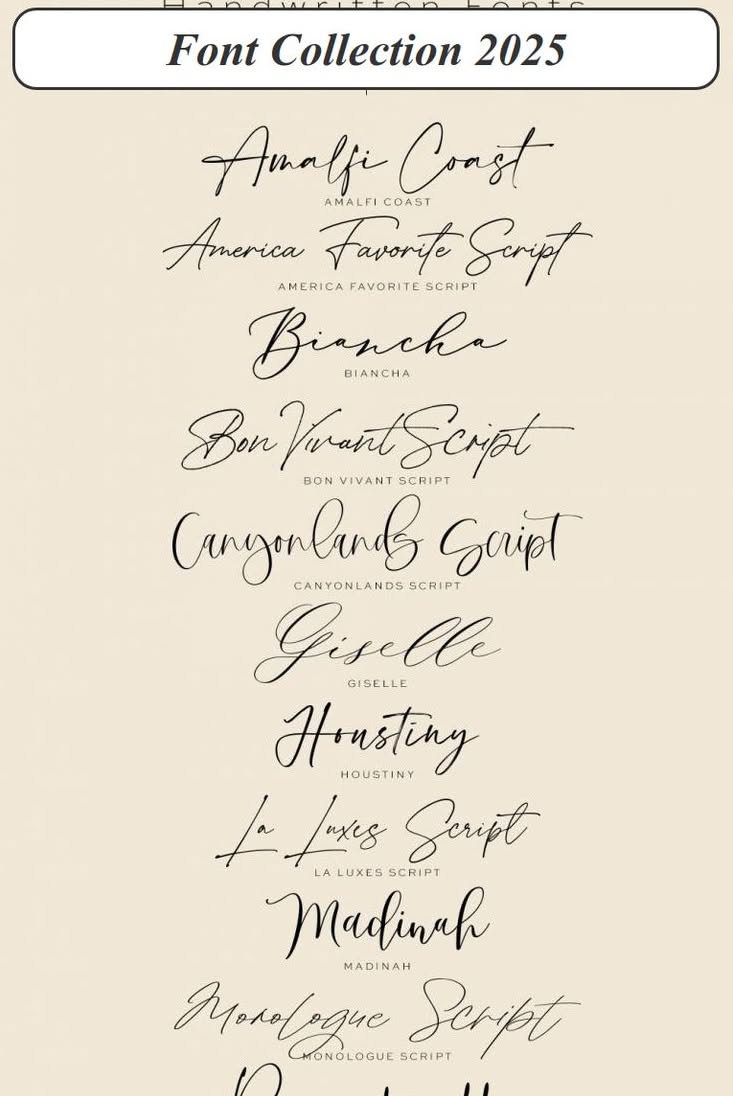 Handwritten Fonts
Font Collection 2025
Amalfi Coast
AMALFI COAST
America Favorite Script
AMERICA FAVORITE SCRIPT
Biancha
BIANCHA
Bon Vivant Script
BON VIVANT SCRIPT
Canyonlands Script
CANYONLANDS SCRIPT
Giselle
GISELLE
Houstiny
HOUSTINY
La Luxes Script
LA LUXES SCRIPT
Madinah
MADINAH
Monologue Script
MONOLOGUE SCRIPT